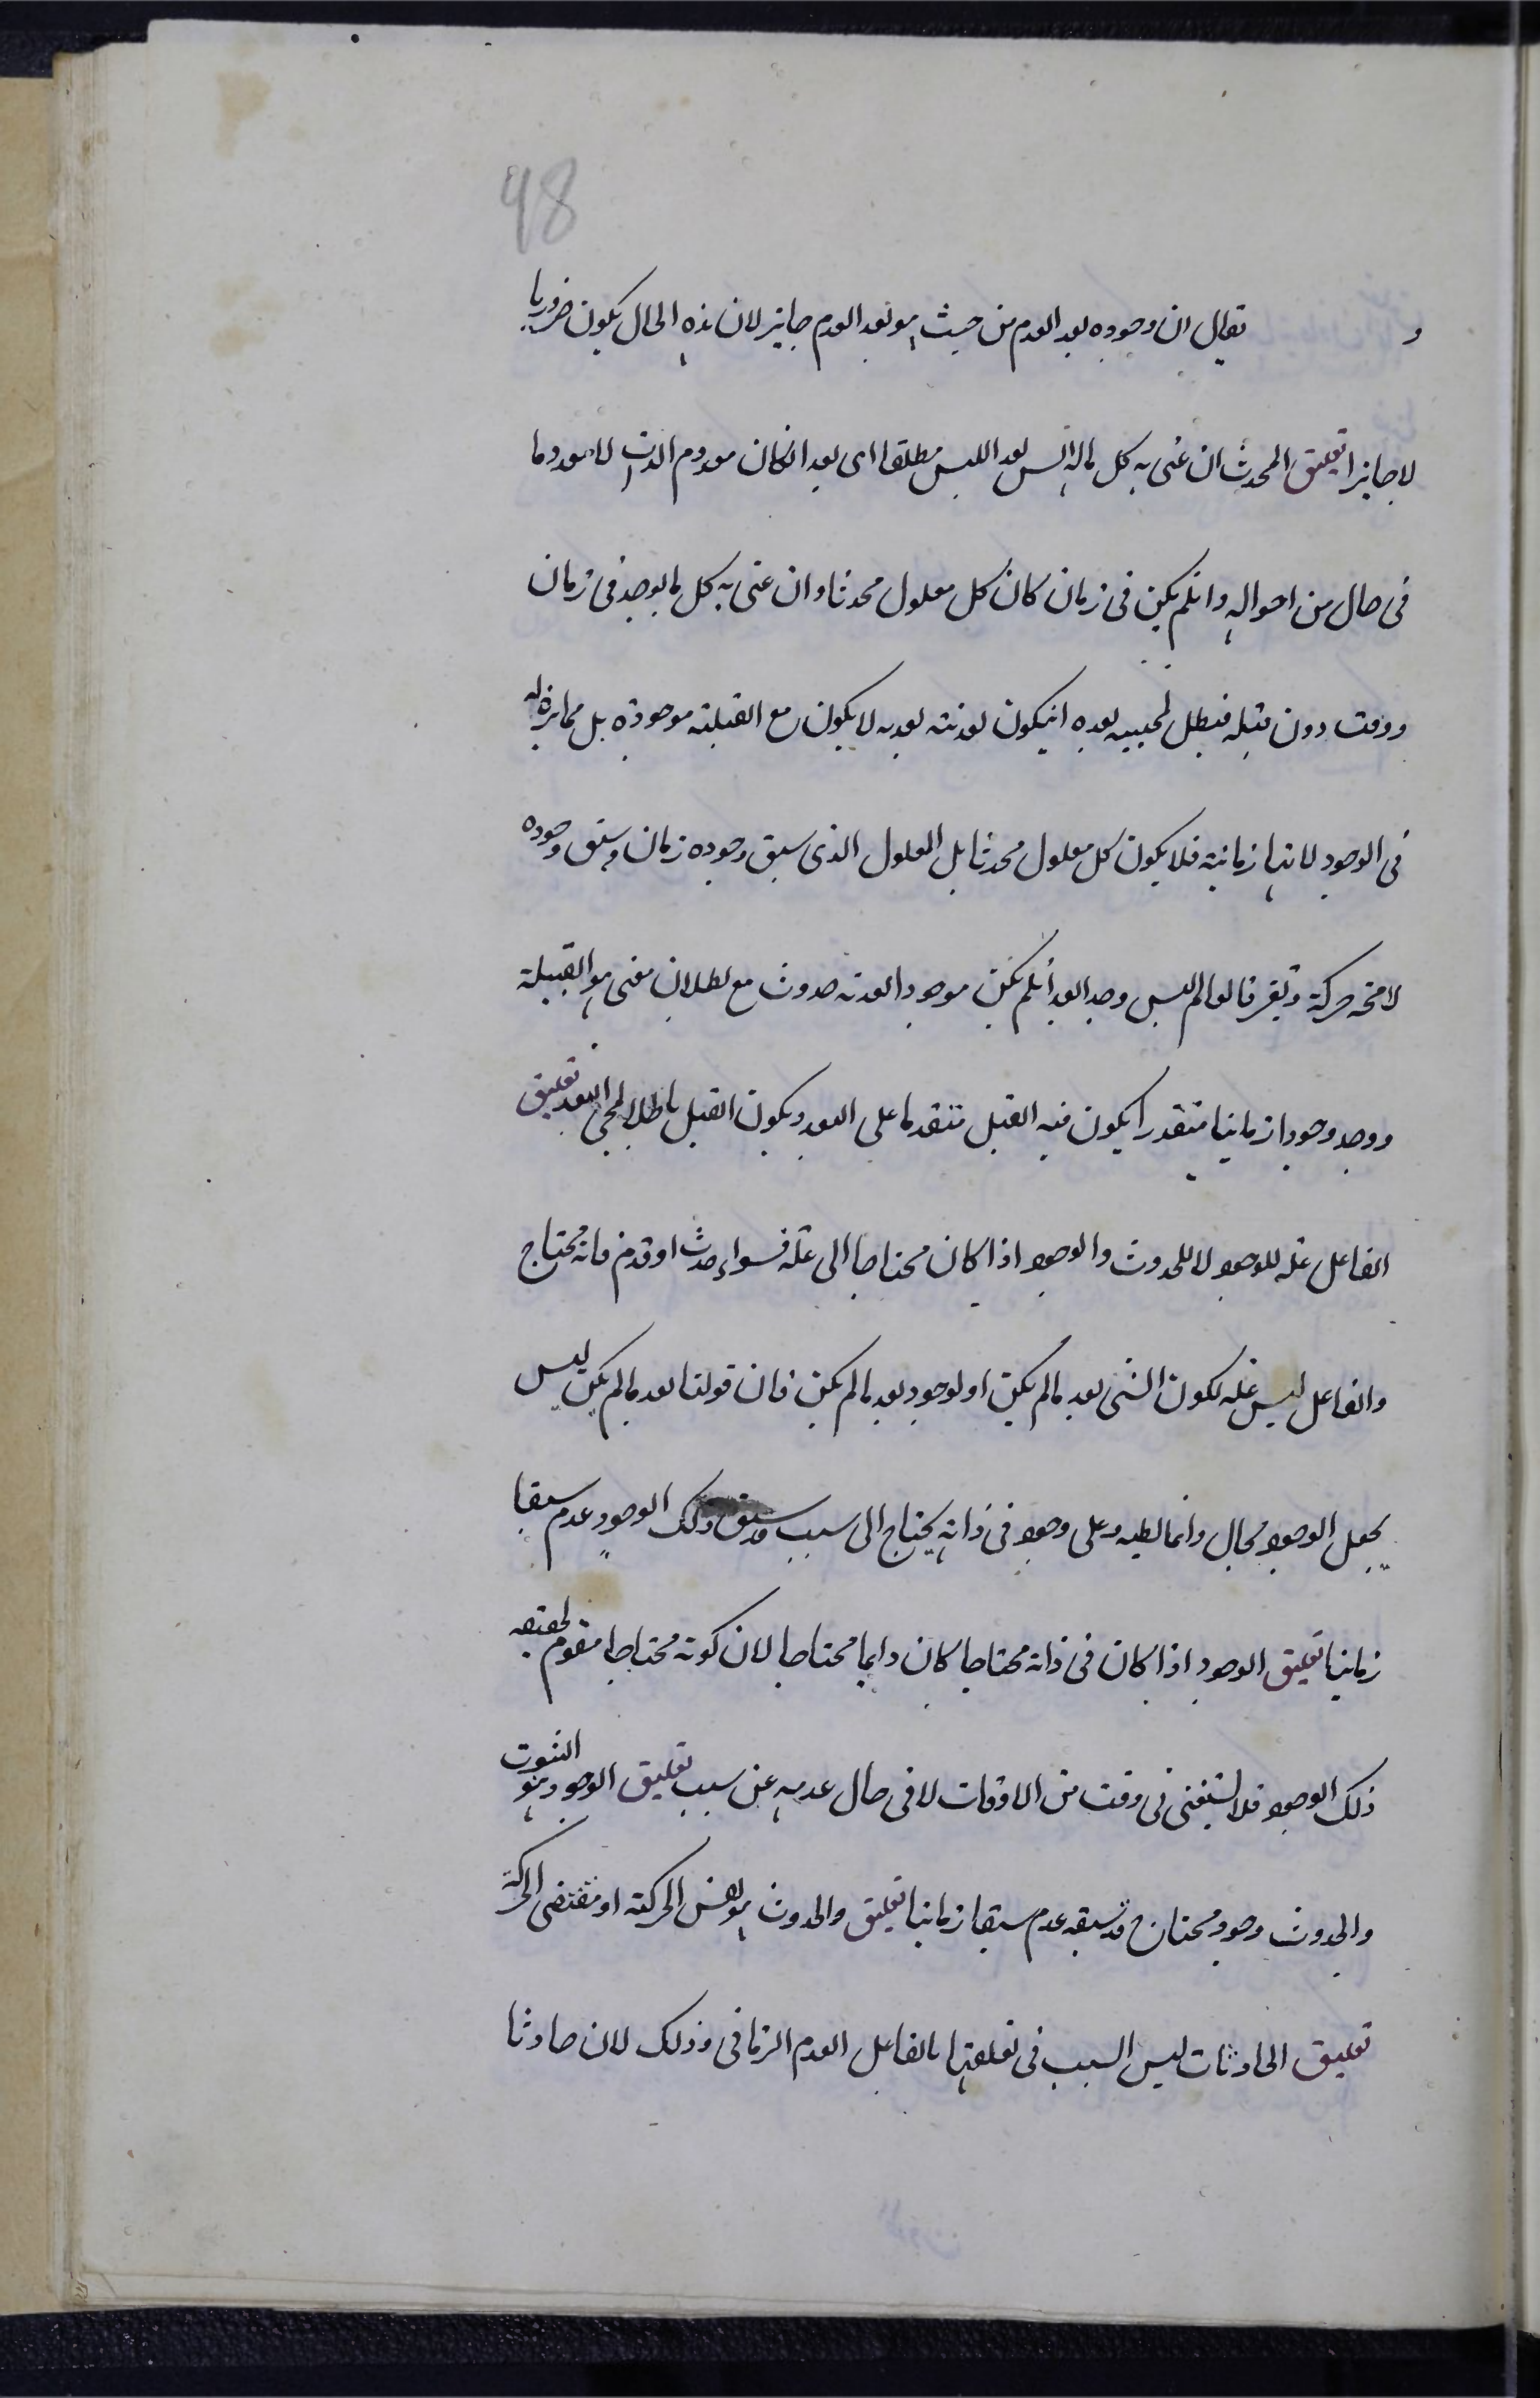 98
و يقال ان وجوده بعد العدم من حيث هو بعد العدم جايز لان هذه الحال يكون ضروريا
لا جايزا تعليق المحدث ان عنى به كل ما له ايس بعد الليس مطلقا اى بعد انكان معدوم الذات لا معدوما
فى حال من احواله وانلم يكن فى زمان كان كل معلول محدثا وان عنى به كل ما يوجد فى زمان
ووقت دون قبله فبطل لمجيئه بعده انيكون بعديته بعدية لا يكون مع القبلية موجودة بل ممايزة له
فى الوجود لانها زمانية فلا يكون كل معلول محدثا بل المعلول الذى سبق وجوده زمان وسبق وجوده
لا محة حركة وتغير فالعالم ليس وجد بعد انلم يكن موجودا بعدية حدوث مع بطلان معنى هو القبيلة
ووجد وجودا زمانيا متقدرا يكون فيه القبل متقدما على البعد ويكون القبل باطلا لمجئ البعد تعليق
الفاعل علة للوجود لا للحدوث والوجود اذا كان محتاجا الى علة فسواء حدث او قدم فانه محتاج
والفاعل ليس علة لكون الشى بعد مالم يكن او لوجود بعد مالم يكن فان قولنا بعد مالم يكن ليس
بجعل الوجود محال وانما يطير وعلى وجود فى ذاته يحتاج الى سبب قد سبق ذلك الوجود عدم سبقا
زمانيا تعليق الوجود اذا كان فى ذاته محتاجا كان دايما محتاجا لان كونه محتاجا مقوم لحقيقه
ذلك الوجود فلا يستغنى فى وقت من الاوقات لا فى حال عدمه عن سبب تعليق الوجود هو الثبوت
والحدوث وجود محتاج قد سبقه عدم سبقا زمانيا تعليق والحدوث هو نفس الحركة او مقتضى الحركة
تعليق الحادثات ليس السبب فى تعلقها بالفاعل العدم الزمانى وذلك لان حادثا